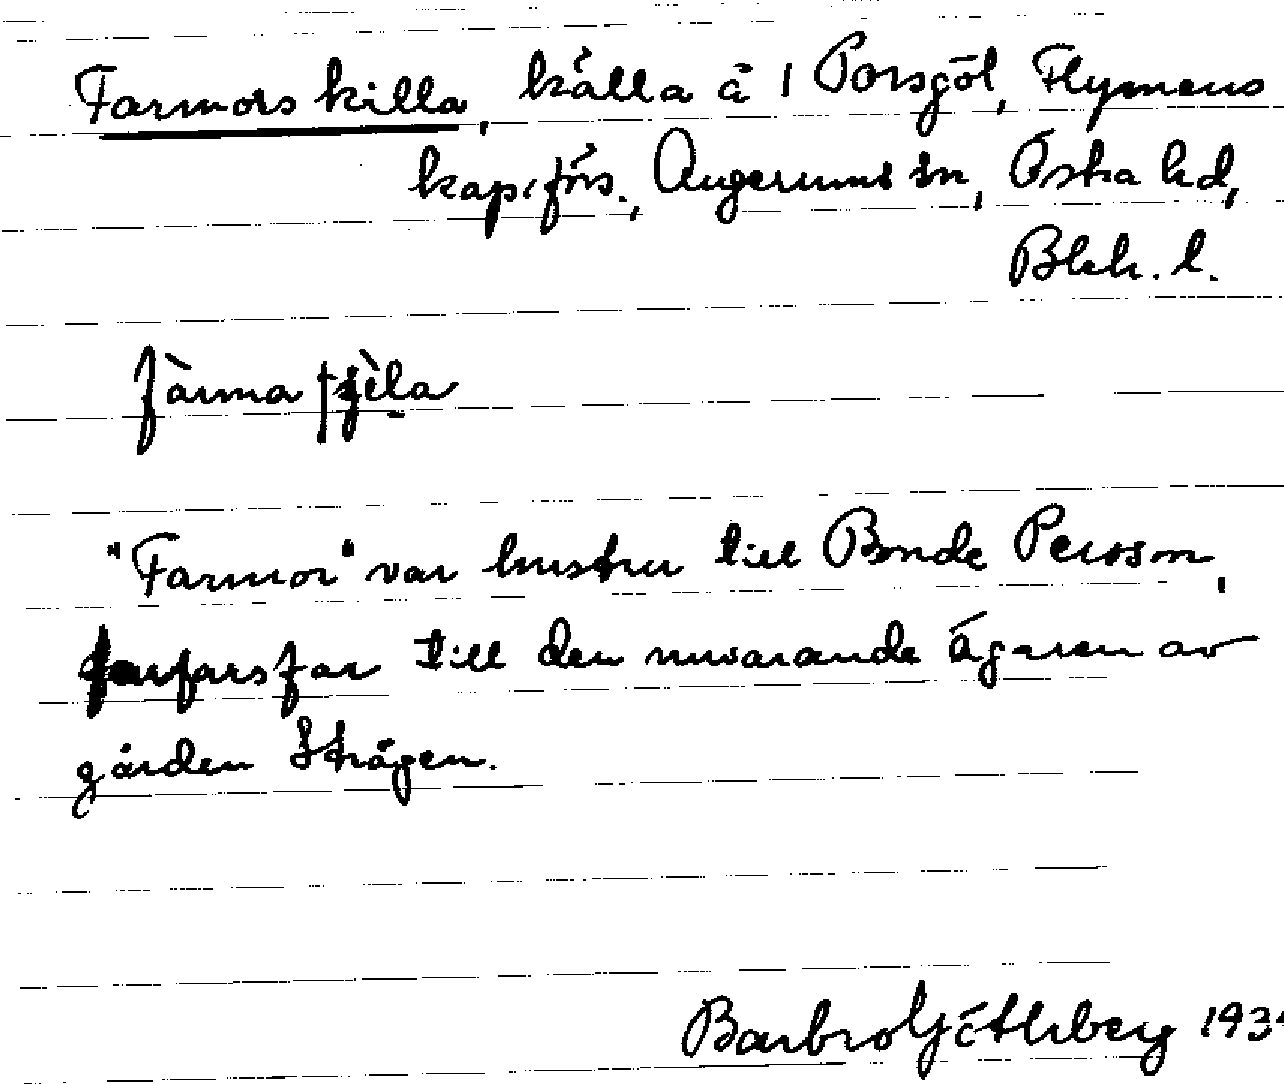 Farmors killa, källa å 1 Porsgöl, Flymens
kap.förs., Augerums sn, Östra hd,
Blek. l.
"Farmor" var hustru till Bonde Persson,
farfarsfar till den nuvarande ägaren av
gården Strågen.
Barbro Göthberg 193